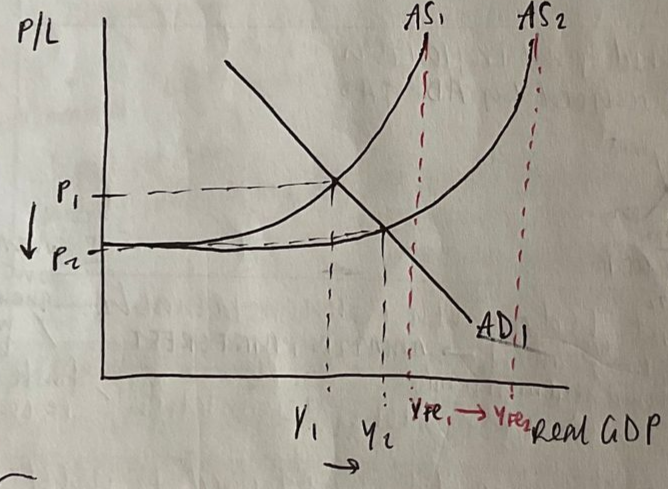 P/L
AS₁
AS₂
P₁
P₂
AD₁
Y₁
Y₂
YFe₁ → YFe₂
Real GDP